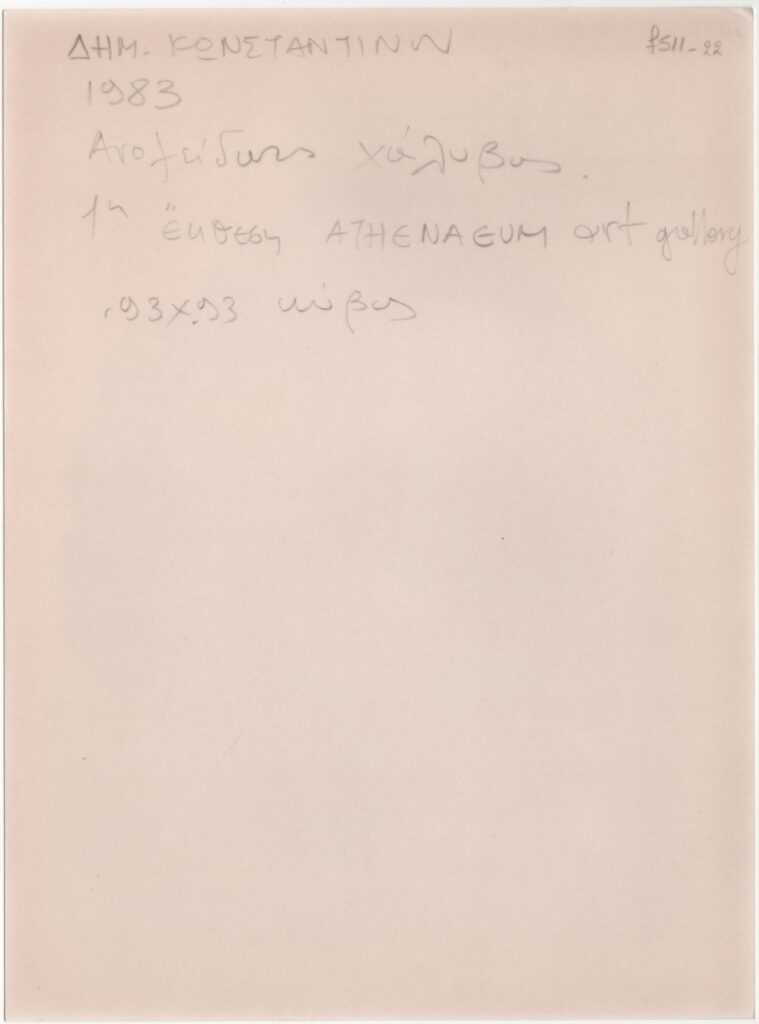 ΔΗΜ. ΚΩΝΣΤΑΝΤΙΝΩΝ
fS11-22
1983
Ανοξείδωτος χάλυβας.
1η έκθεση ATHENAEUM art gallery
.93x.93 κύβος